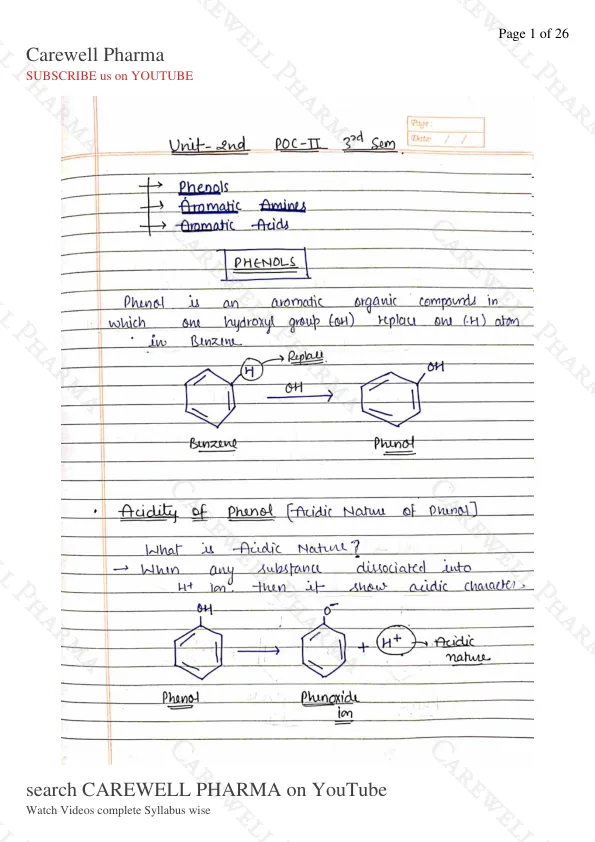 Page 1 of 26
Carewell Pharma
SUBSCRIBE us on YOUTUBE
Page:
Date: / /
Unit-2nd POC-II 3rd Sem.
→ Phenols
→ Aromatic Amines
→ Aromatic Acids
PHENOLS
Phenol is an aromatic organic compounds in
which one hydroxyl group (OH) replace one (-H) atom
in Benzene
H → Replace
OH
OH
Benzene
Phenol
• Acidity of Phenol [Acidic Nature of Phenol]
What is Acidic Nature?
→ When any substance dissociated into
H+ Ion. then it show acidic character.
OH
O-
+ H+ → Acidic
nature
Phenol
Phenoxide
ion
search CAREWELL PHARMA on YouTube
Watch Videos complete Syllabus wise
CAREWELL PHARMA